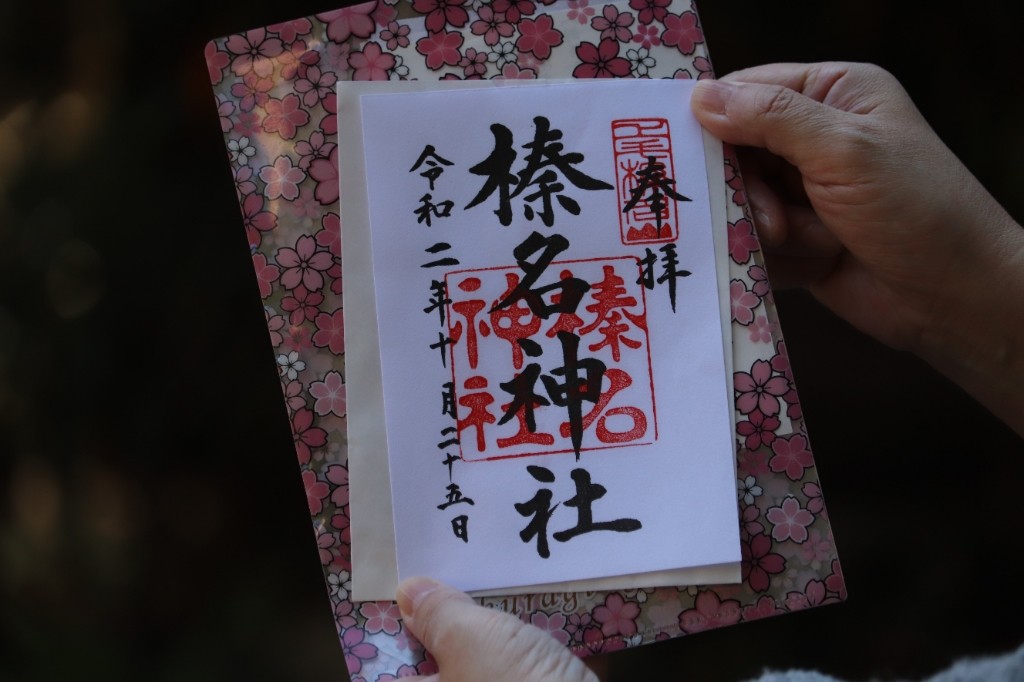 奉拝
榛名神社
榛名
神社
令和二年十月二十五日